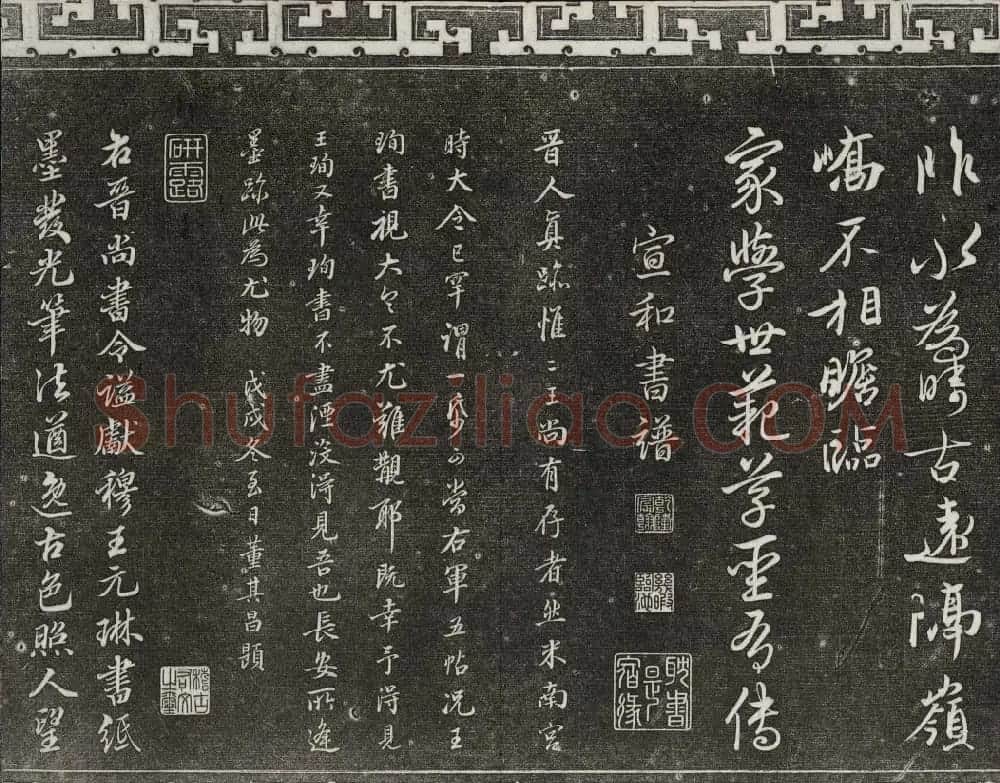 昨永為疇古遠隔嶺
嶠不相瞻臨
家學世范草聖有傳
宣和書譜
耽書是宿緣
晉人真跡惟二王尚有存者然米南宮
時大令已罕謂一紙可當右軍五帖況王
珣書視大令不尤難覯耶既幸予得見
王珣又幸珣書不盡湮沒得見吾也長安所逢
墨跡此為尤物 戊戌冬至日董其昌題
研露
右晉尚書令謚獻穆王元琳書紙
墨發光筆法遒逸古色照人望
稽古右文之璽
Shufaziliao.COM